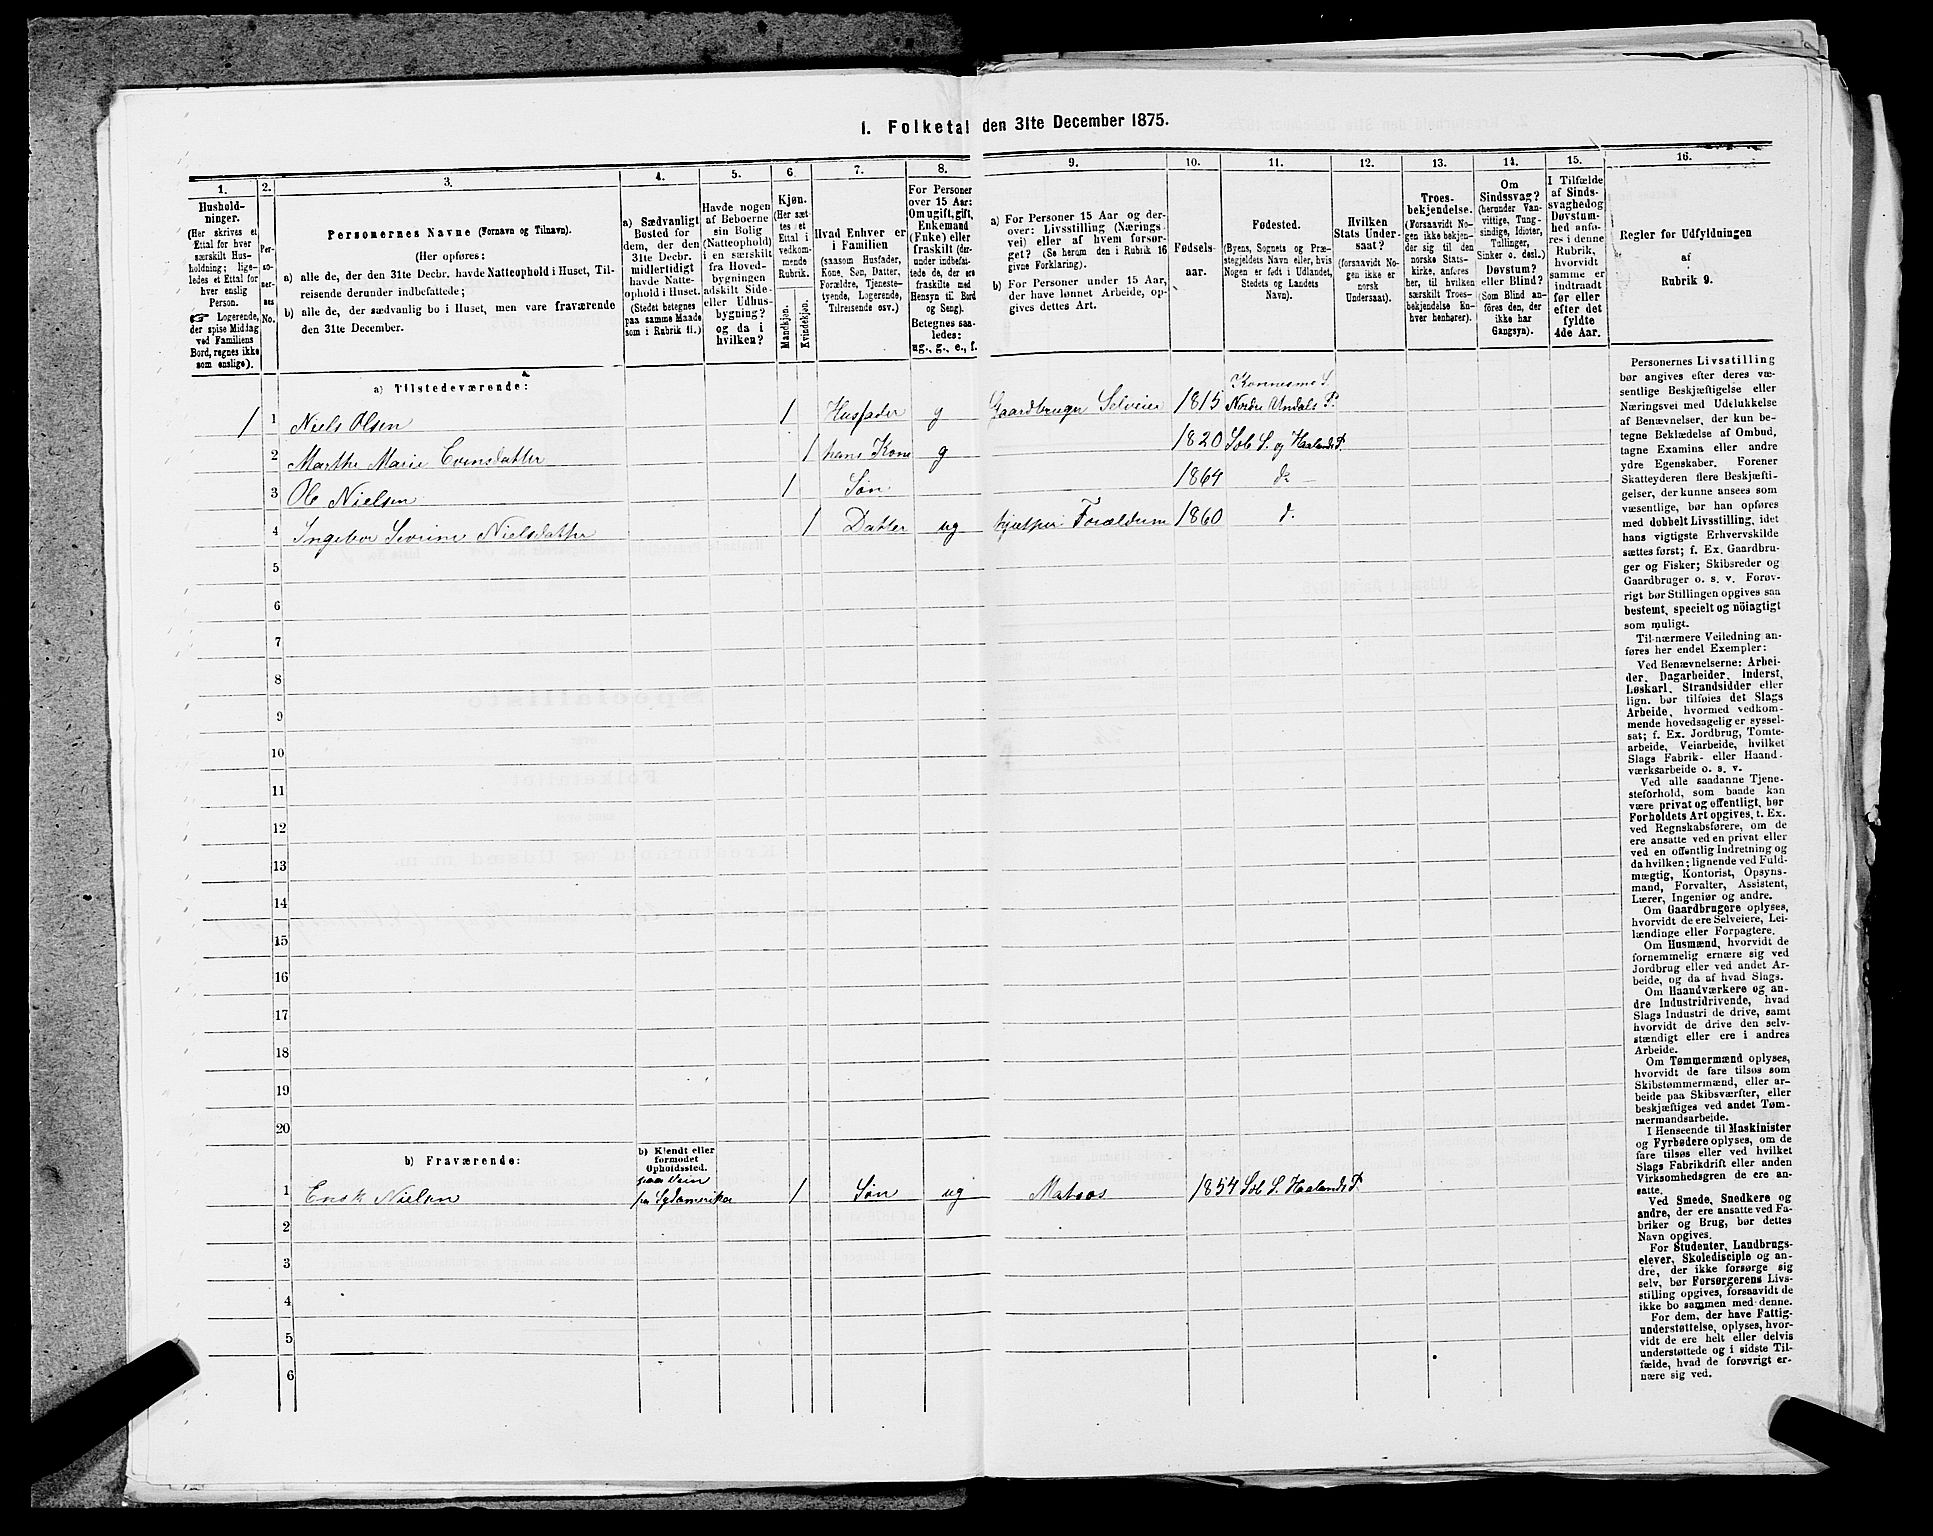 I. Folketal den 31te December 1875.
1. 2. 3. 4. 5. 6. 7. 8. 9. 10. 11. 12. 13. 14. 15. 16.
Hushold-
ninger.
(Her skrives et
Ettal for hver
særskilt Hus-
holdning; lige-
ledes et Ettal for
hver enslig
Person.
☞ Logerende,
der spise Middag
ved Familiens
Bord, regnes ikke
som enslige).
Per-
so-
ner-
nes
No.
Personernes Navne (Fornavn og Tilnavn).
(Her opføres:
a) alle de, der den 31te Decbr. havde Natteophold i Huset, Til-
reisende derunder indbefattede;
b) alle de, der sædvanlig bo i Huset, men vare fraværende
den 31te December.
a) Sædvanligt
Bosted for
dem, der den
31te Decbr.
midlertidigt
havde Natte-
ophold i Huset.
(Stedet betegnes
paa samme Maade
som i Rubrik 11.)
Havde nogen
af Beboerne
sin Bolig
(Natteophold)
i en særskilt
fra Hoved-
bygningen
adskilt Side-
eller Udhus-
bygning?
og da i
hvilken?
Kjøn.
(Her sæt-
tes et
Ettal i
vedkom-
mende
Rubrik.
Mandkjøn.
Kvindekjøn.
Hvad Enhver er
i Familien
(saasom Husfader,
Kone, Søn, Datter,
Forældre, Tjeneste-
tyende, Logerende,
Tilreisende osv.)
For Personer
over 15 Aar:
Om ugift, gift,
Enkemand
(Enke) eller
fraskilt (der-
under indbefat-
tede de, der ere
fraskilte med
Hensyn til Bord
og Seng).
Betegnes saa-
ledes:
ug., g., e., f.
a) For Personer 15 Aar og der-
over: Livsstilling (Nærings-
vei) eller af hvem forsør-
get? (Se herom den i Rubrik 16
givne Forklaring).
b) For Personer under 15 Aar,
der have lønnet Arbeide, op-
gives dettes Art.
Fødsels-
aar.
Fødested.
(Byens, Sognets og Præ-
stegjeldets Navn eller, hvis
Nogen er født i Udlandet,
Stedets og Landets
Navn).
Hvilken
Stats Under-
saat?
(forsaavidt No-
gen ikke er
norsk
Undersaat).
Troes-
bekjendelse.
(Forsaavidt No-
gen ikke bekjen-
der sig til den
norske Stats-
kirke, anføres
her, til hvilken
særskilt Troes-
bekjendelse En-
hver henhører).
Om
Sindssvag?
(herunder Van-
vittige, Tung-
sindige, Idioter,
Tullinger,
Sinker o. desl.)
Døvstum?
eller Blind?
(Som Blind an-
føres den, der
ikke har
Gangsyn).
I Tilfælde
af Sinds-
svaghed og
Døvstum-
hed anfø-
res i denne
Rubrik,
hvorvidt
samme er
indtraadt
før eller
efter det
fyldte
4de Aar.
Regler for Udfyldningen
af
Rubrik 9.
a) Tilstedeværende:
1 1 Niels Olsen 1 Husfader g Gaardbruger Selveier 1815 Nordre Undals P.
2 Marthe Marie Evensdatter 1 hans Kone g 1820 Søb S. og Haalands P.
3 Ole Nielsen 1 Søn 1864 do
4 Ingebor Sevrine Nielsdatter 1 Datter ug hjelper Forældern 1860 d.
5
6
7
8
9
10
11
12
13
14
15
16
17
18
19
20
b) Fraværende:
b) Kjendt eller
formodet
Opholdssted.
1 Enok Nielsen paa Rein fra Sydamerika 1 Søn ug Matros 1854 Søb S. Haalands P
2
3
4
5
6
Personernes Livsstilling
bør angives efter deres væ-
sentlige Beskjæftigelse eller
Næringsvei med Udelukkelse
af Benævnelser, der kun be-
tegne Beklædelse af Ombud,
tagne Examina eller andre
ydre Egenskaber. Forener
Skatteyderen flere Beskjæfti-
gelser, der kunne ansees som
væsentlige, bør han opføres
med dobbelt Livsstilling, idet
hans vigtigste Erhvervskilde
sættes først; f. Ex. Gaardbru-
ger og Fisker; Skibsreder og
Gaardbruger o. s. v. Forøv-
rigt bør Stillingen opgives saa
bestemt, specielt og nöiagtigt
som muligt.
Til nærmere Veiledning an-
føres her endel Exempler:
Ved Benævnelserne: Arbei-
der, Dagarbeider, Inderst,
Løskarl, Strandsidder eller
lign. bør tilføies det Slags
Arbeide, hvormed vedkom-
mende hovedsagelig er syssel-
sat; f. Ex. Jordbrug, Tomte-
arbeide, Veiarbeide, hvilket
Slags Fabrik- eller Haand-
værksarbeide o. s. v.
Ved alle saadanne Tjene-
steforhold, som baade kan
være privat og offentligt, bør
Forholdets Art opgives, t. Ex.
ved Regnskabsførere, om de
ere ansatte ved en privat eller
ved en offentlig Indretning og
da hvilken; lignende ved Fuld-
mægtig, Kontorist, Opsyns-
mand, Forvalter, Assistent,
Lærer, Ingeniør og andre.
Om Gaardbrugere oplyses,
hvorvidt de ere Selveiere, Lei-
lændinge eller Forpagtere.
Om Husmænd, hvorvidt de
fornemmelig ernære sig ved
Jordbrug eller ved andet Ar-
beide, og da af hvad Slags.
Om Haandværkere og an-
dre Industridrivende, hvad
Slags Industri de drive, samt
hvorvidt de drive den selv-
stændigt eller ere i andres
Arbeide.
Om Tømmermænd oplyses,
hvorvidt de fare tilsøs som
Skibstømmermænd, eller ar-
beide paa Skibsværfter, eller
beskjæftiges ved andet Tøm-
mermandsarbeide.
I Henseende til Maskinister
og Fyrbødere oplyses, om de
fare tilsøs eller ved hvilket
Slags Fabrikdrift eller anden
Virksomhedsgren de ere an-
satte.
Ved Smede, Snedkere og
andre, der ere ansatte ved Fa-
briker og Brug, bør dettes
Navn opgives.
For Studenter, Landbrugs-
elever, Skoledisciple og an-
dre, der ikke forsørge sig
selv, bør Forsørgerens Livs-
stilling opgives, forsaavidt de
ikke bo sammen med denne.
For dem, der have Fattig-
understøttelse, oplyses, hvor-
vidt de ere helt eller delvis
understøttede og i sidste Til-
fælde, hvad de forøvrigt er-
nære sig ved.